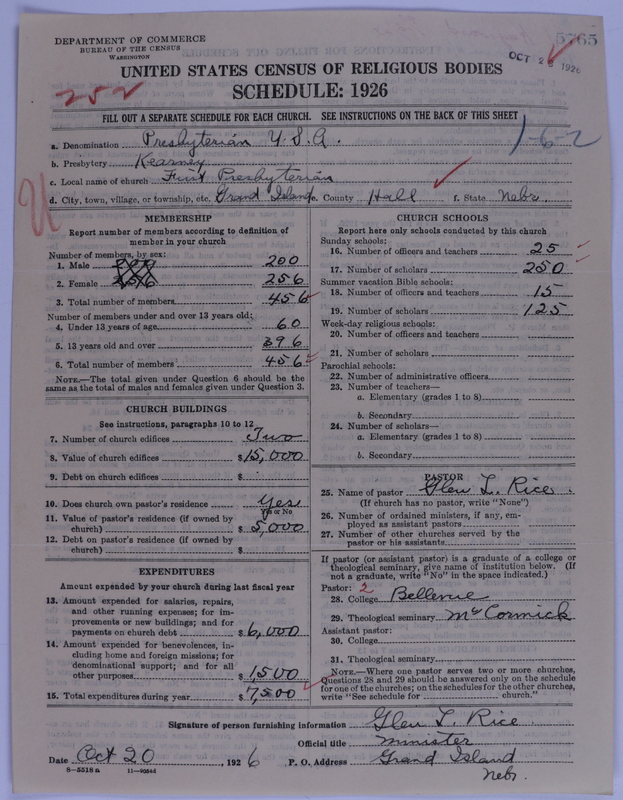 DEPARTMENT OF COMMERCE
BUREAU OF THE CENSUS
WASHINGTON
5765
OCT 2 1926
UNITED STATES CENSUS OF RELIGIOUS BODIES
SCHEDULE: 1926
252
FILL OUT A SEPARATE SCHEDULE FOR EACH CHURCH. SEE INSTRUCTIONS ON THE BACK OF THIS SHEET
1-6-2
a. Denomination Presbyterian U.S.A.
b. Presbytery Kearney
c. Local name of church First Presbyterian
d. City, town, village, or township, etc. Grand Island e. County Hall f. State Nebr.
MEMBERSHIP
Report number of members according to definition of
member in your church
Number of members, by sex:
1. Male 200
2. Female 256
3. Total number of members 456
Number of members under and over 13 years old:
4. Under 13 years of age 60
5. 13 years old and over 396
6. Total number of members 456
NOTE.—The total given under Question 6 should be the
same as the total of males and females given under Question 3.
CHURCH BUILDINGS
See instructions, paragraphs 10 to 12
7. Number of church edifices Two
8. Value of church edifices $15,000
9. Debt on church edifices $
10. Does church own pastor's residence Yes
Yes or No
11. Value of pastor's residence (if owned by
church) $5,000
12. Debt on pastor's residence (if owned by
church) $
EXPENDITURES
Amount expended by your church during last fiscal year
13. Amount expended for salaries, repairs,
and other running expenses; for im-
provements or new buildings; and for
payments on church debt $6,000
14. Amount expended for benevolences, in-
cluding home and foreign missions; for
denominational support; and for all
other purposes $1500
15. Total expenditures during year $7500
CHURCH SCHOOLS
Report here only schools conducted by this church
Sunday schools:
16. Number of officers and teachers 25
17. Number of scholars 250
Summer vacation Bible schools:
18. Number of officers and teachers 15
19. Number of scholars 125
Week-day religious schools:
20. Number of officers and teachers
21. Number of scholars
Parochial schools:
22. Number of administrative officers
23. Number of teachers—
a. Elementary (grades 1 to 8)
b. Secondary
24. Number of scholars—
a. Elementary (grades 1 to 8)
b. Secondary
PASTOR
25. Name of pastor Glen L. Rice.
(If church has no pastor, write "None")
26. Number of ordained ministers, if any, em-
ployed as assistant pastors
27. Number of other churches served by the
pastor or his assistants
If pastor (or assistant pastor) is a graduate of a college or
theological seminary, give name of institution below. (If
not a graduate, write "No" in the space indicated.)
Pastor: 2
28. College Bellevue
29. Theological seminary McCormick
Assistant pastor:
30. College
31. Theological seminary
NOTE.—Where one pastor serves two or more churches,
Questions 28 and 29 should be answered only on the schedule
for one of the churches; on the schedules for the other churches,
write "See schedule for church."
Signature of person furnishing information Glen L. Rice
Official title Minister
Date Oct 20, 1926 P. O. Address Grand Island
Nebr.
8—5518 a 11—9054d